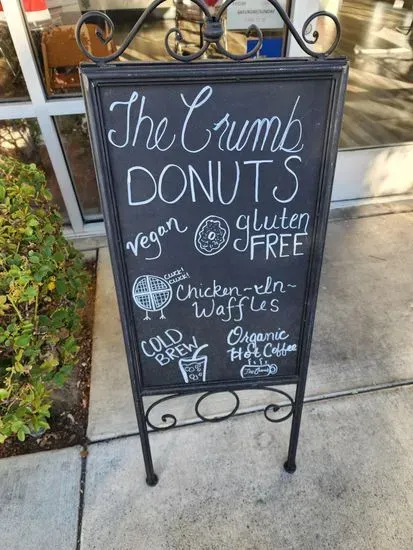 The Crumb
DONUTS
vegan
gluten
FREE
CLUCK!
CLUCK!
Chicken-In-
Waffles
COLD
BREW
Organic
Hot Coffee
The Crumb